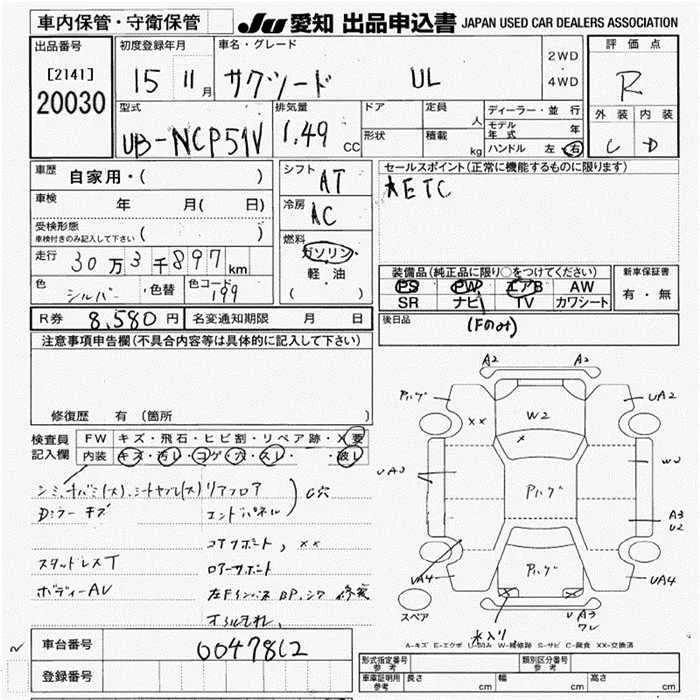 車内保管・守衛保管
JU 愛知 出品申込書 JAPAN USED CAR DEALERS ASSOCIATION
出品番号
[2141]
20030
初度登録年月
15 11月
車名・グレード
サクシード UL
2WD
・
4WD
評価点
R
外装 内装
C D
型式
UB-NCP51V
排気量
1.49 CC
ドア
定員
人
形状
積載
kg
ディーラー・並行
モデル年式 年
ハンドル 左・右
車歴
自家用・( )
車検 年 月( 日)
受検形態
車検付きのみ記入して下さい ( )
走行 30万3千897km
色 シルバー ・色替
色コード 199
シフト
AT
冷房
AC
燃料
ガソリン
軽・油
( )
セールスポイント(正常に機能するものに限ります)
ETC
装備品(純正品に限り○をつけてください)
PS PW エアB AW
SR ナビ TV カワシート
新車保証書
有・無
R券 8,580円 名変通知期限 月 日
後日品
(Fのみ)
注意事項申告欄(不具合内容等は具体的に記入して下さい)
修復歴 有 (箇所 )
検査員
記入欄
FW キズ・飛石・ヒビ割・リペア跡・X要
内装 キズ・汚レ・コゲ・穴・スレ・ ・破レ
シミ、 リアフロア
C穴
Dミラー キズ エンドパネル
コアサポート, ××
スタッドレスT ロアーサポート
ボディーAV
A2 A2
UA2
××
W2
×
UA3
W3
A3
U2
UA4
UA4
× ×
A3
スペア
水入り
A-キズ E-エクボ U-凹み W-補修跡 S-サビ C-腐食 XX-交換済
車台番号 0047812
登録番号
形式指定番号
参考
類別区分番号
参考
車庫証明用
参考
長さ cm 幅 cm 高さ cm